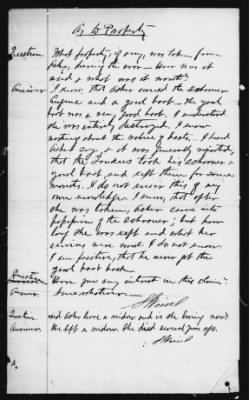 As to Property
Question What property, if any, was taken from
Asher, during the war – How was it
used & what was it worth?
Answer I know, that Asher owned the schooner
and a yawl boat – the yawl
boat was a very good boat. I understand
she was entirely destroyed. I know
nothing about the value of boats. I heard
Asher say, & it was generally reported,
that the Yankees took his schooner &
yawl boat, and kept them for some
months. I do not know this of my
own knowledge. I know, that after
she was taken, Asher came into
possession of the schooner; but how
long she was kept and what her
services are worth I do not know.
I am positive, that he never got the
yawl boat back.
Question Have you any interest in this claim?
Answer None whatever.
Question Did Asher leave a widow and is she living now?
Answer He left a widow. She died several years ago.